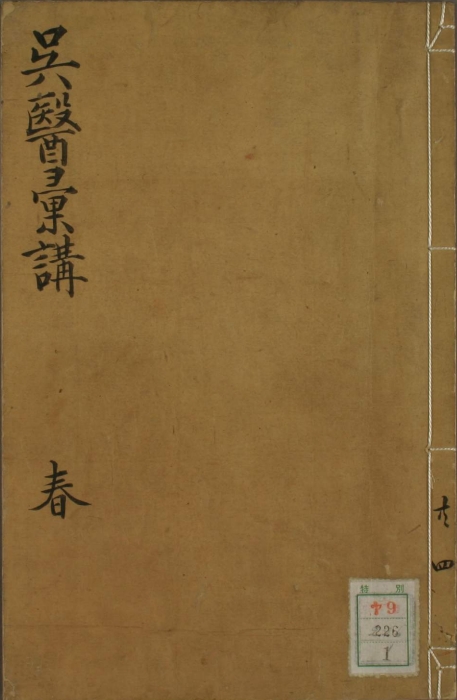 吳醫彙講
春
共
四
特別
ヤ9
226
1